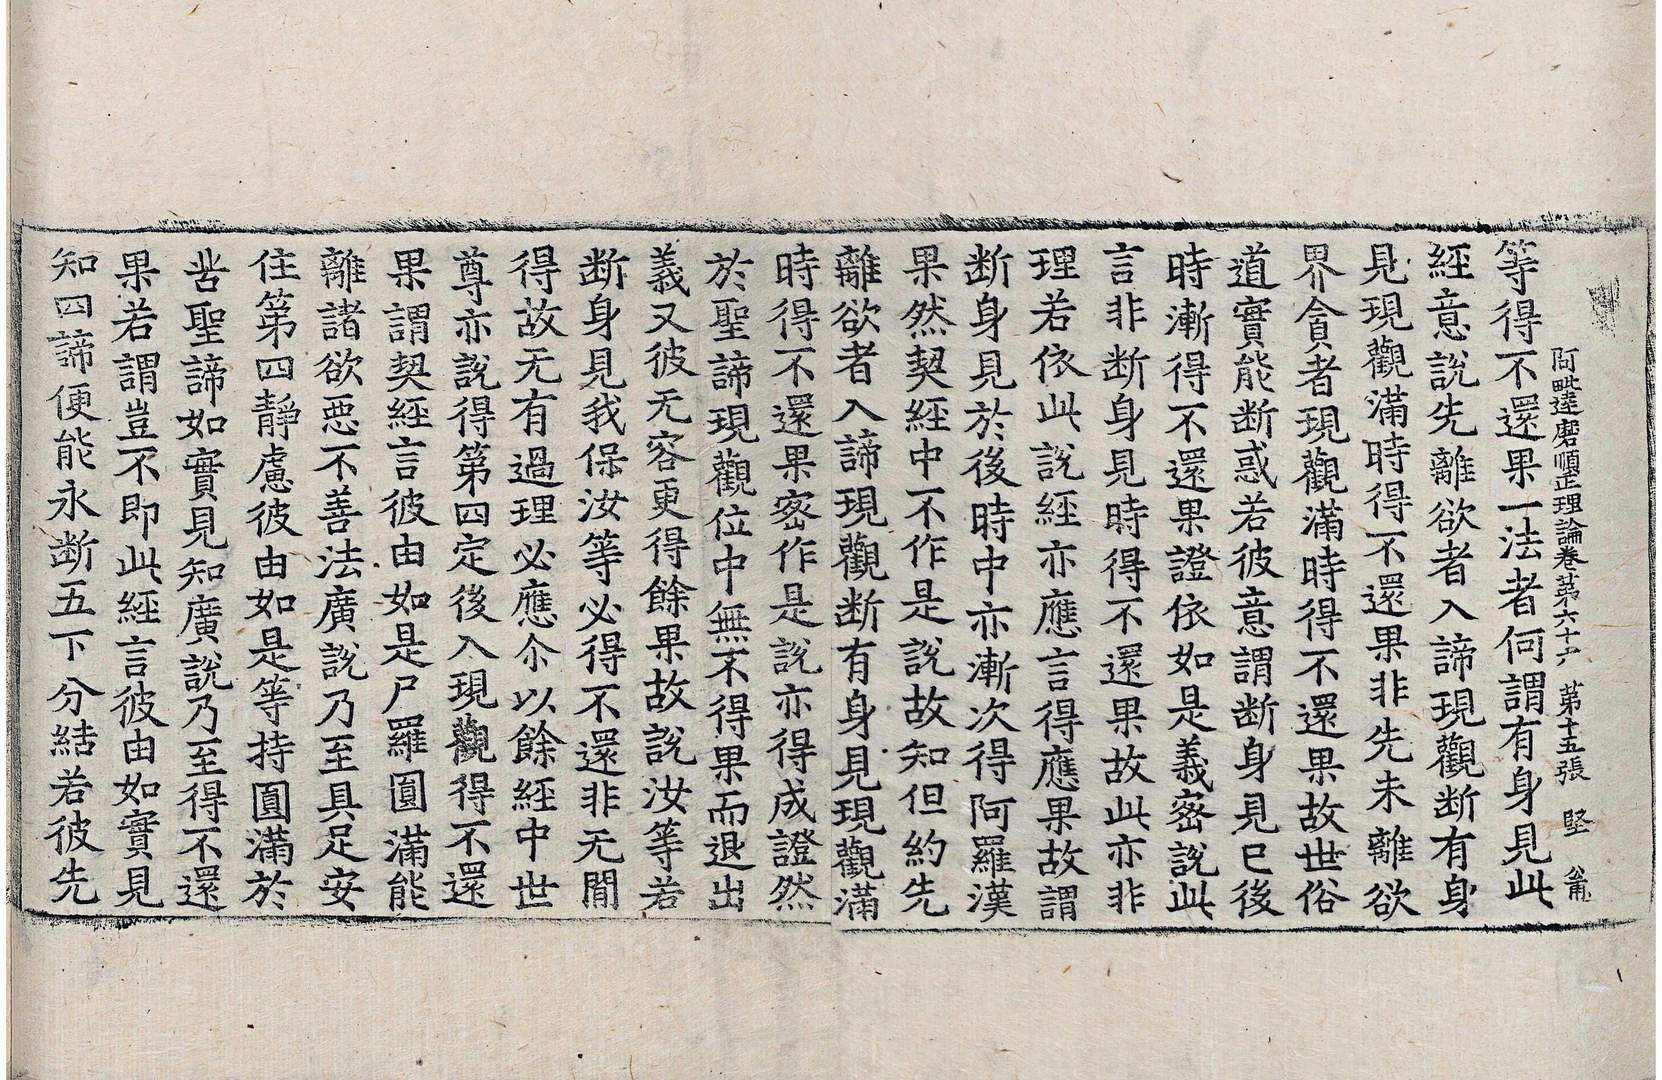 阿毗達磨順正理論卷第六十六 第十五張 堅
等得不還果一法者何謂有身見此
經意說先離欲者入諦現觀断有身
見現觀滿時得不還果非先未離欲
界貪者現觀滿時得不還果故世俗
道實能断惑若彼意謂断身見已後
時漸得不還果證依如是義密說此
言非断身見時得不還果故此亦非
理若依此說經亦應言得應果故謂
断身見於後時中亦漸次得阿羅漢
果然契經中不作是說故知但約先
離欲者入諦現觀断有身見現觀滿
時得不還果密作是說亦得成證然
於聖諦現觀位中無不得果而退出
義又彼无容更得餘果故說汝等若
断身見我保汝等必得不還非无間
得故无有過理必應尒以餘經中世
尊亦說得第四定後入現觀得不還
果謂契經言彼由如是尸羅圓滿能
離諸欲惡不善法廣說乃至具足安
住第四靜慮彼由如是等持圓滿於
苦聖諦如實見知廣說乃至得不還
果若謂豈不即此經言彼由如實見
知四諦便能永断五下分結若彼先